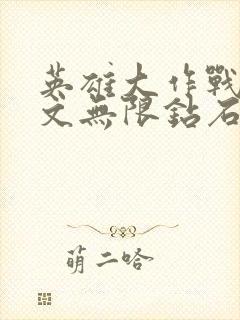 英雄大作戰
文無限鈷石
萌二哈